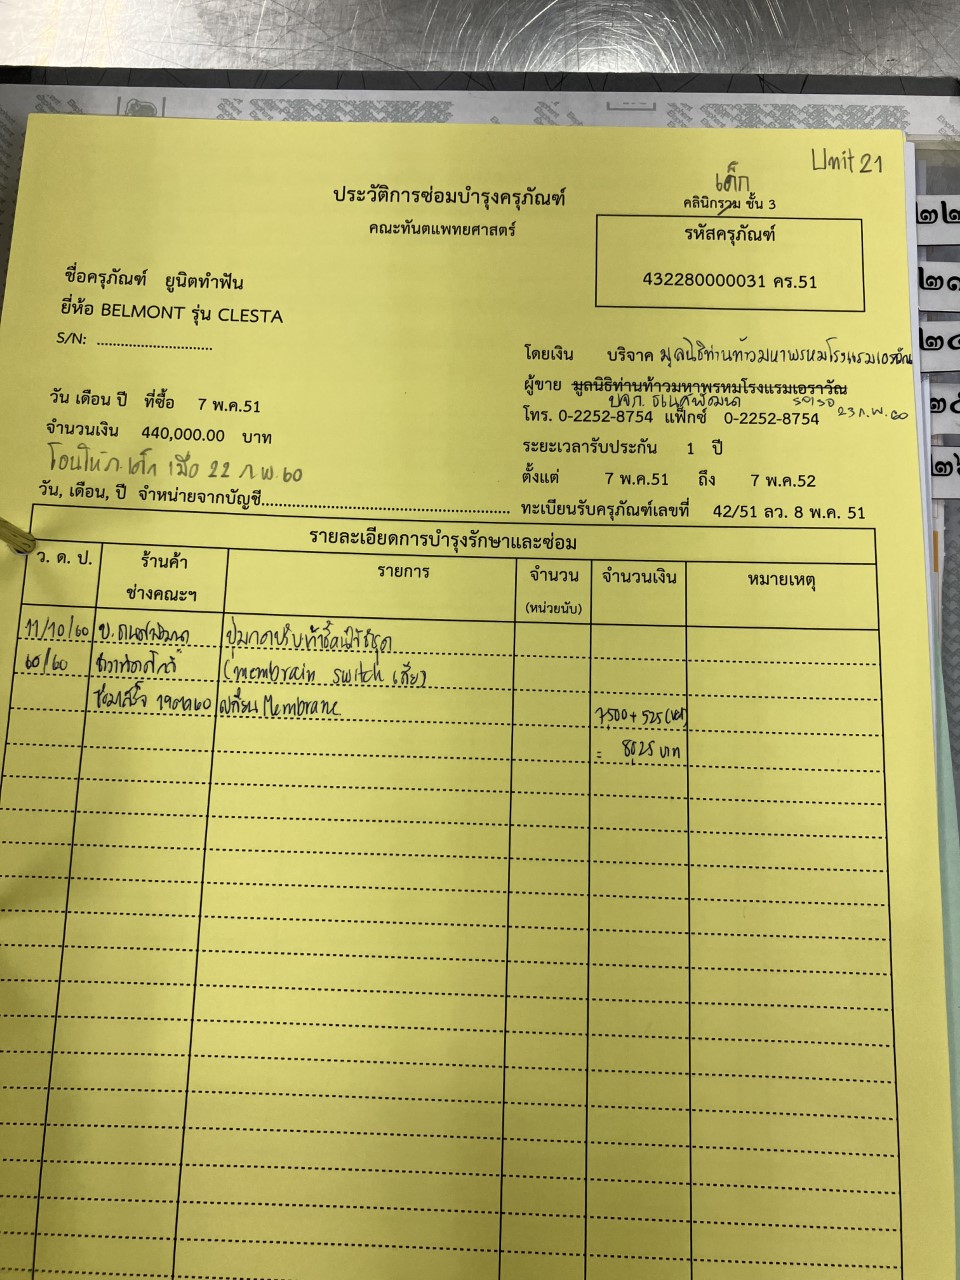 Unit 21
เด็ก
ประวัติการซ่อมบำรุงครุภัณฑ์
คลินิกรวม ชั้น 3
คณะทันตแพทยศาสตร์
รหัสครุภัณฑ์
432280000031 คร.51
ชื่อครุภัณฑ์ ยูนิตทำฟัน
ยี่ห้อ BELMONT รุ่น CLESTA
S/N: ..............................
โดยเงิน บริจาค มูลนิธิท่านท้าวมหาพรหมโรงแรมเอราวัณ
ผู้ขาย มูลนิธิท่านท้าวมหาพรหมโรงแรมเอราวัณ
23 ก.พ. 60
วัน เดือน ปี ที่ซื้อ 7 พ.ค.51
โทร. 0-2252-8754 แฟ็กซ์ 0-2252-8754
จำนวนเงิน 440,000.00 บาท
ระยะเวลารับประกัน 1 ปี
โอนให้ภ.เด็ก เมื่อ 22 ก.พ. 60
ตั้งแต่ 7 พ.ค.51 ถึง 7 พ.ค.52
วัน, เดือน, ปี จำหน่ายจากบัญชี..............................
ทะเบียนรับครุภัณฑ์เลขที่ 42/51 ลว. 8 พ.ค. 51
รายละเอียดการบำรุงรักษาและซ่อม
ว. ด. ป. ร้านค้า ช่างคณะฯ รายการ จำนวน (หน่วยนับ) จำนวนเงิน หมายเหตุ
11/10/60
60/60 (membrain switch เสีย)
เปลี่ยน Membrane 7,500 + 525 (vat)
= 8,025 บาท
๒๒
๒๑
๒๔
๒๕
๒๖